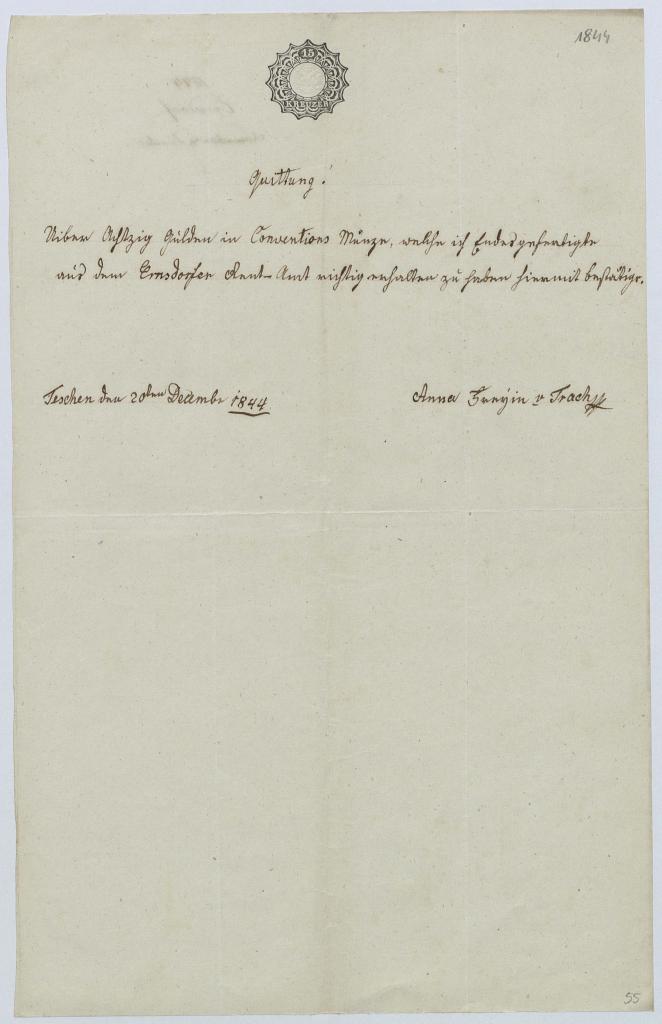 1844
15
KREUZER
Quittung!
Uiber Achtzig Gulden in Conventions Münze, welche ich Endesgefertigte
aus dem Ernsdorfer Rent-Amt richtig erhalten zu haben hiermit bestätige.
Teschen den 20ten Decembr 1844.
Anna Freyin v Trach
55